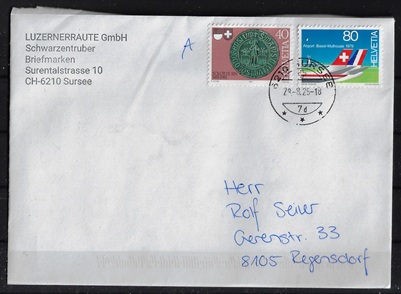 LUZERNERRAUTE GmbH
Schwarzentruber
Briefmarken
Surentalstrasse 10
CH-6210 Sursee
A
40
HELVETIA
Airport Basel-Mulhouse 1979
80
HELVETIA
6210 SURSEE
29-8.25-18
7d
Herr
Rolf Seiler
Gerenstr. 33
8105 Regensdorf